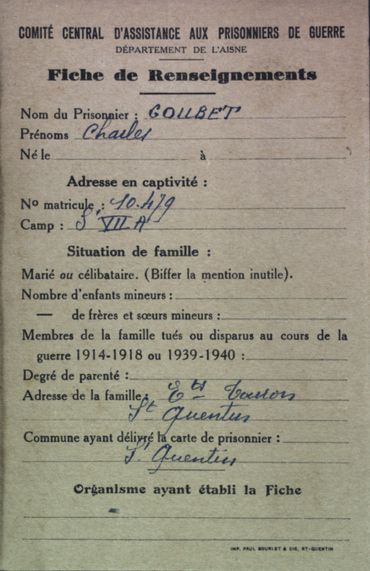 COMITÉ CENTRAL D'ASSISTANCE AUX PRISONNIERS DE GUERRE
DÉPARTEMENT DE L'AISNE
Fiche de Renseignements
Nom du Prisonnier : GOUBET
Prénoms Charles
Né le à
Adresse en captivité :
No matricule : 10.479
Camp : St VII A
Situation de famille :
Marié ou célibataire. (Biffer la mention inutile).
Nombre d'enfants mineurs :
— de frères et sœurs mineurs :
Membres de la famille tués ou disparus au cours de la
guerre 1914-1918 ou 1939-1940 :
Degré de parenté :
Adresse de la famille : Ets
St Quentin
Commune ayant délivré la carte de prisonnier :
St Quentin
Organisme ayant établi la Fiche
IMP. PAUL BOURLET & CIE, ST-QUENTIN